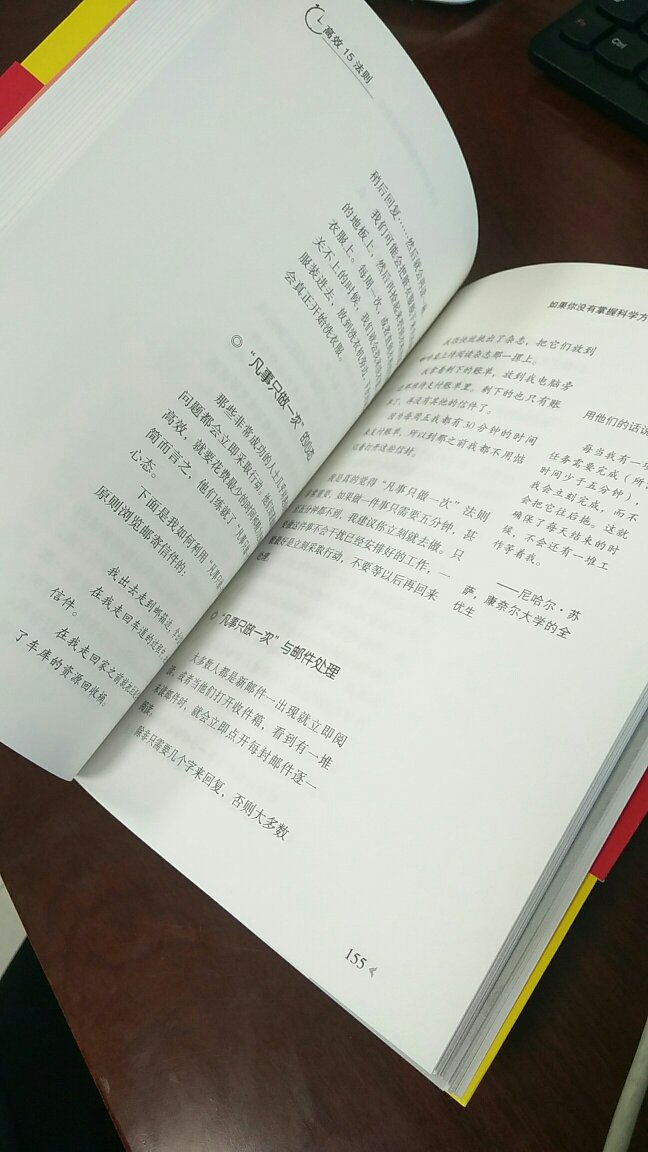 高效 15 法则
稍后回复……然后就会再读一遍
我们可能会把脏衣服
的地板上,然后再
衣服上。每周一次,或者
关不上的时候,我们就会
服装进去,放到洗衣机旁
会真正开始洗衣服。
◎ “凡事只做一次”的心态
那些非常成功的人士几乎
问题都会立即采取行动。他们
高效,就要花费最少的时间
简而言之,他们练就了“凡事只做
心态。
下面是我如何利用“凡事只
原则浏览邮寄信件的:
我出去走到邮箱边,
在我走回车道的过程中,
信件。
在我走回家之前
了车库的资源回收桶。
如果你没有掌握科学方
我很快就挑出了杂志,把它们放到
上待阅读杂志那一摞上。
我拿着剩下的账单,放到我电脑旁
边那摞待支付账单里。剩下的也只有账
单了,再没有其他的信件了。
因为每周五我都有30分钟的时间
来支付账单,所以到那之前我都不用惦
记着打开这些信封。
我是真的觉得“凡事只做一次”法则
非常重要。如果做一件事只需要五分钟,甚
至五分钟都不到,我建议你立刻就去做。只
要做这件事不会干扰已经安排好的工作,一
般最好是立刻采取行动,不要等以后再回来
处理。
◎ “凡事只做一次”与邮件处理
大多数人都是新邮件一出现就立即阅
读,或者当他们打开收件箱,看到有一堆
未读邮件时,就会立即点开每封邮件逐一
阅读。
除非只需要几个字来回复,否则大多数
用他们的话说
每当我有一项
任务需要完成(所
时间少于五分钟),
我会立刻完成,而不
会把它往后拖。这就
确保了每天结束的时
候,不会还有一堆工
作等着我。
——尼哈尔·苏
萨,康奈尔大学的全
优生
155